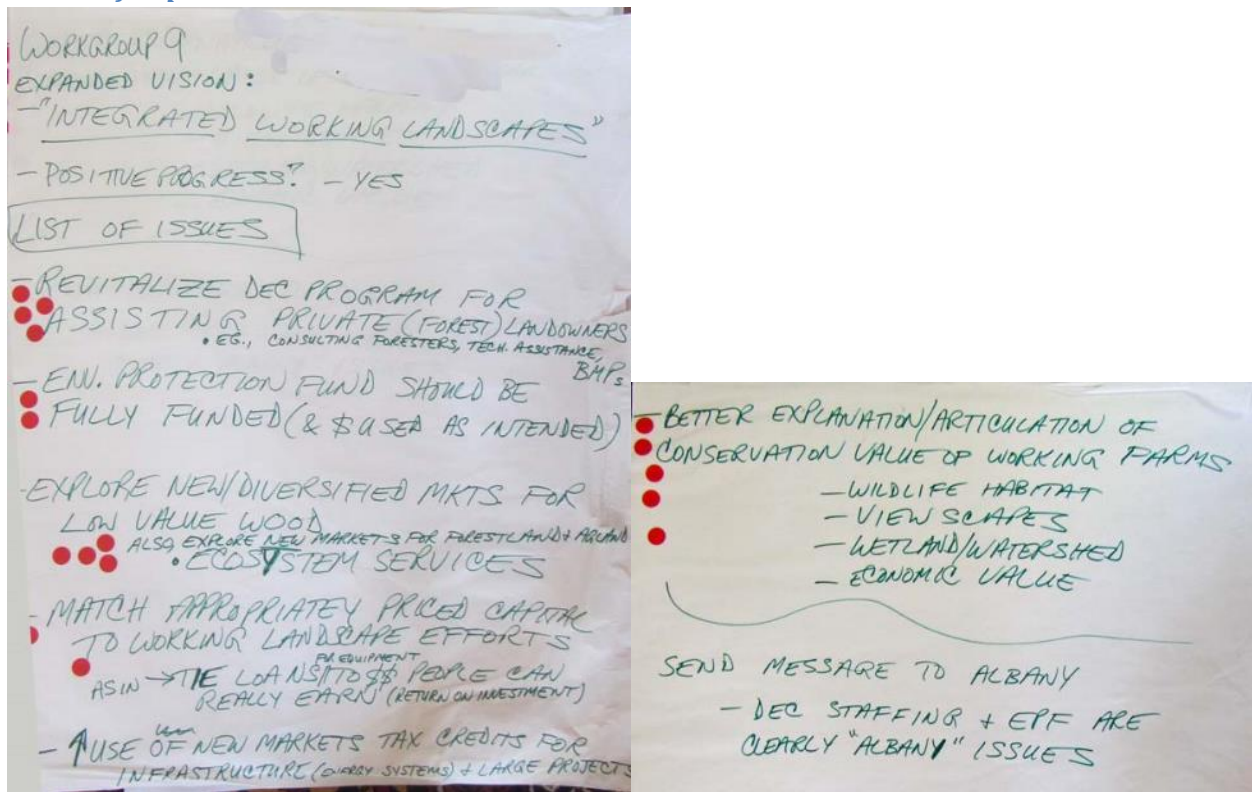 WORKGROUP 9
EXPANDED VISION:
- "INTEGRATED WORKING LANDSCAPES"
- POSITIVE PROGRESS? - YES
LIST OF ISSUES
- REVITALIZE DEC PROGRAM FOR
ASSISTING PRIVATE (FOREST) LANDOWNERS
• EG., CONSULTING FORESTERS, TECH. ASSISTANCE,
BMPs
- ENV. PROTECTION FUND SHOULD BE
FULLY FUNDED (& $ USED AS INTENDED)
- EXPLORE NEW/DIVERSIFIED MKTS FOR
LOW VALUE WOOD
ALSO, EXPLORE NEW MARKETS FOR FORESTLAND + AGLAND
• ECOSYSTEM SERVICES
- MATCH APPROPRIATEY PRICED CAPITAL
TO WORKING LANDSCAPE EFFORTS
FOR EQUIPMENT
AS IN → TIE LOANS TO $$ PEOPLE CAN
REALLY EARN (RETURN ON INVESTMENT)
- ↑ USE OF NEW MARKETS TAX CREDITS FOR
INFRASTRUCTURE (ENERGY SYSTEMS) + LARGE PROJECTS
- BETTER EXPLANATION/ARTICULATION OF
CONSERVATION VALUE OF WORKING FARMS
- WILDLIFE HABITAT
- VIEWSCAPES
- WETLAND/WATERSHED
- ECONOMIC VALUE
SEND MESSAGE TO ALBANY
- DEC STAFFING + EPF ARE
CLEARLY "ALBANY" ISSUES